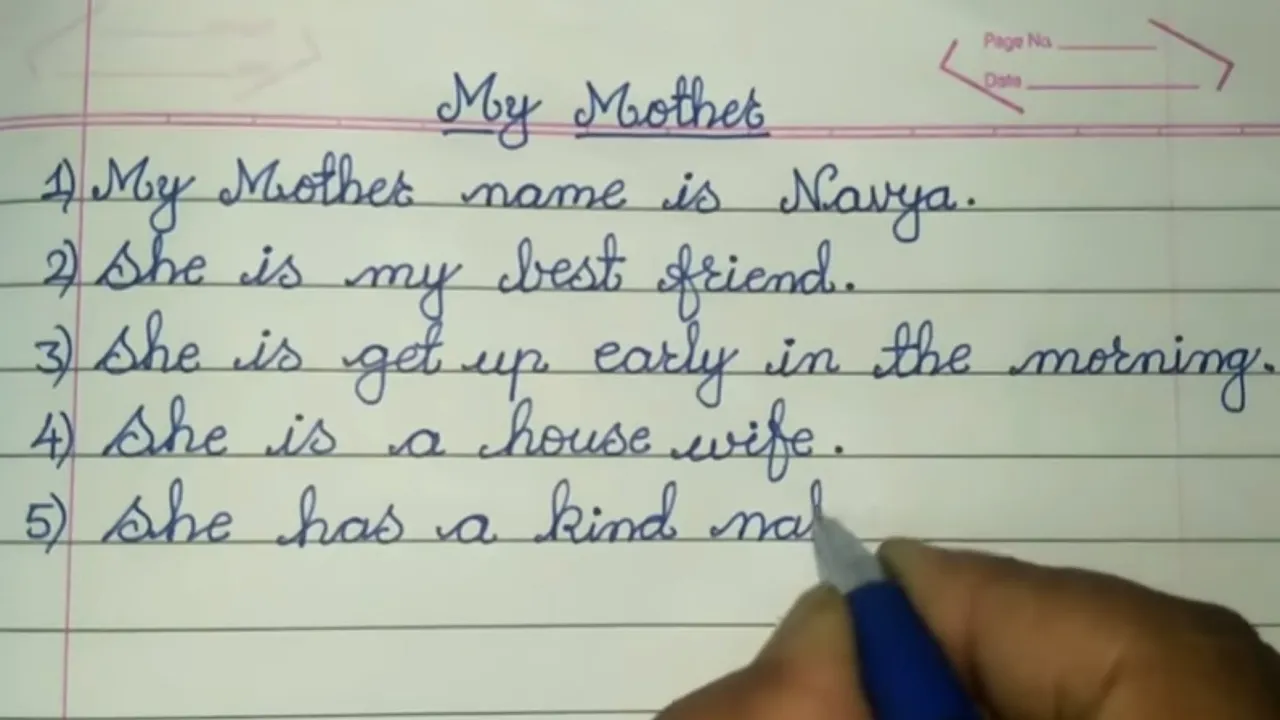 Page No.
Date
My Mother
1) My Mother name is Navya.
2) She is my best friend.
3) She is get up early in the morning.
4) She is a house wife.
5) She has a kind